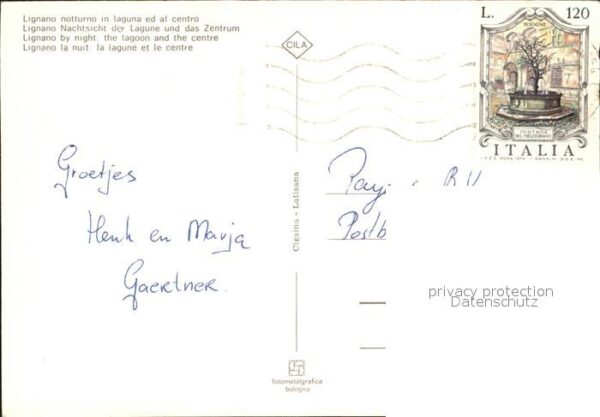 Lignano notturno in laguna ed al centro
Lignano Nachtsicht der Lagune und das Zentrum
Lignano by night: the lagoon and the centre
Lignano la nuit: la lagune et le centre
CILA
L. 120
ISOGNE
FONTANA
DEL MELOGRANO
ITALIA
Groetjes
Henk en Marja
Gaertner.
Cigaina - Latisana
Postb
privacy protection
Datenschutz
fotometalgrafica
bologna